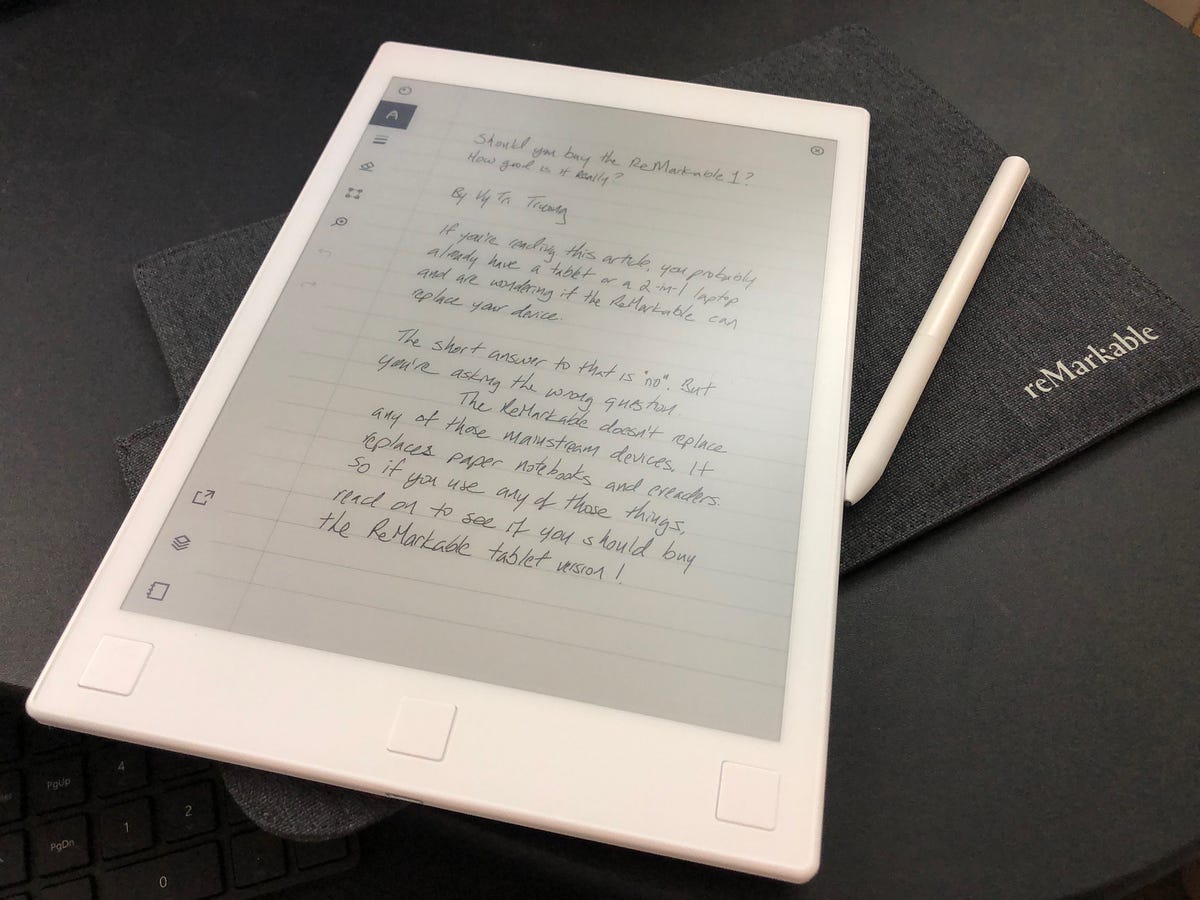 Should you buy the ReMarkable 1?
How good is it really?
By Vy Tri Truong
If you're reading this article, you probably
already have a tablet or a 2-in-1 laptop
and are wondering if the ReMarkable can
replace your device.
The short answer to that is "no". But
you're asking the wrong question
The ReMarkable doesn't replace
any of those mainstream devices. It
replaces paper notebooks and ereaders.
So if you use any of those things,
read on to see if you should buy
the ReMarkable tablet version!
A
reMarkable
PgUp
4
PgDn
1
2
0